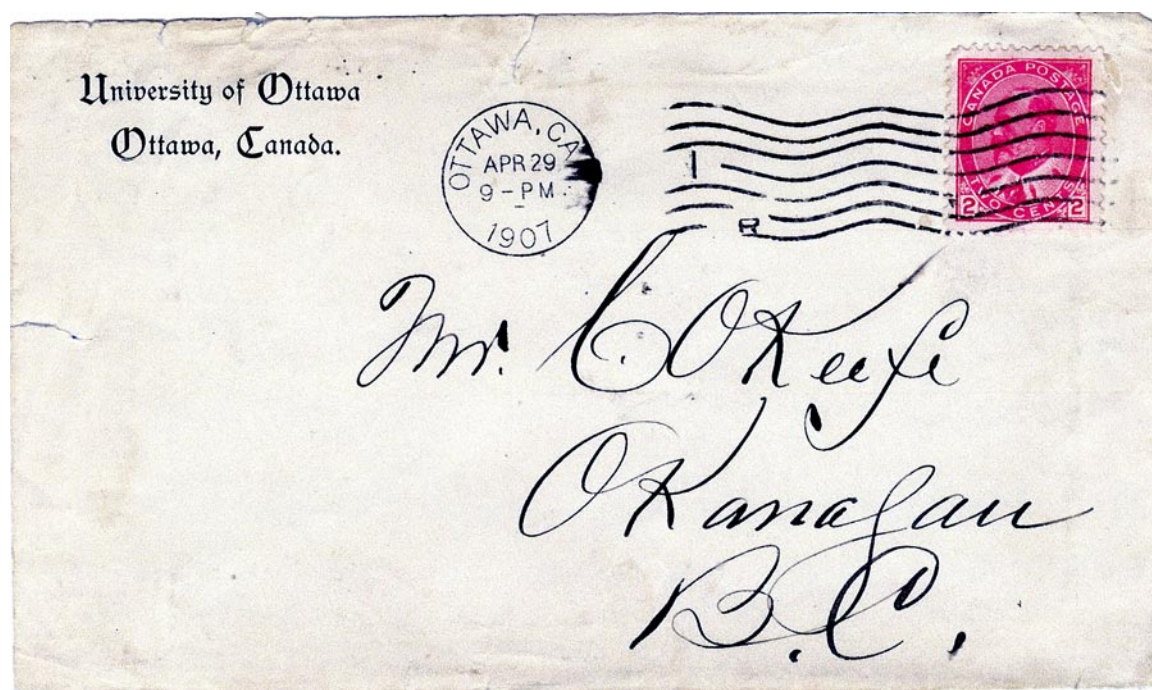 University of Ottawa
Ottawa, Canada.
OTTAWA, CA
APR 29
9-PM
1907
I
R
CANADA POSTAGE
2 TWO CENTS 2
Mr. C. OKeefe
OKanagan
B.C.